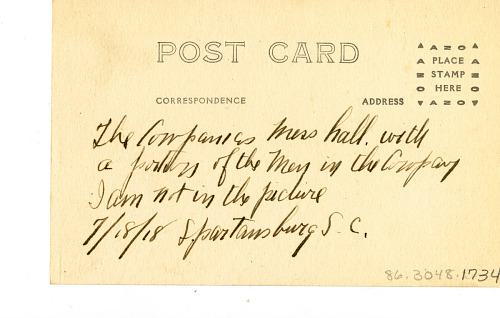 POST CARD
CORRESPONDENCE
ADDRESS
AZO
PLACE
STAMP
HERE
AZO
AZO
AZO
The Companies Mess hall. with
a portion of the Men in the Company
I am not in the picture
7/18/18 Spartansburg S. C.
86.3048.1734